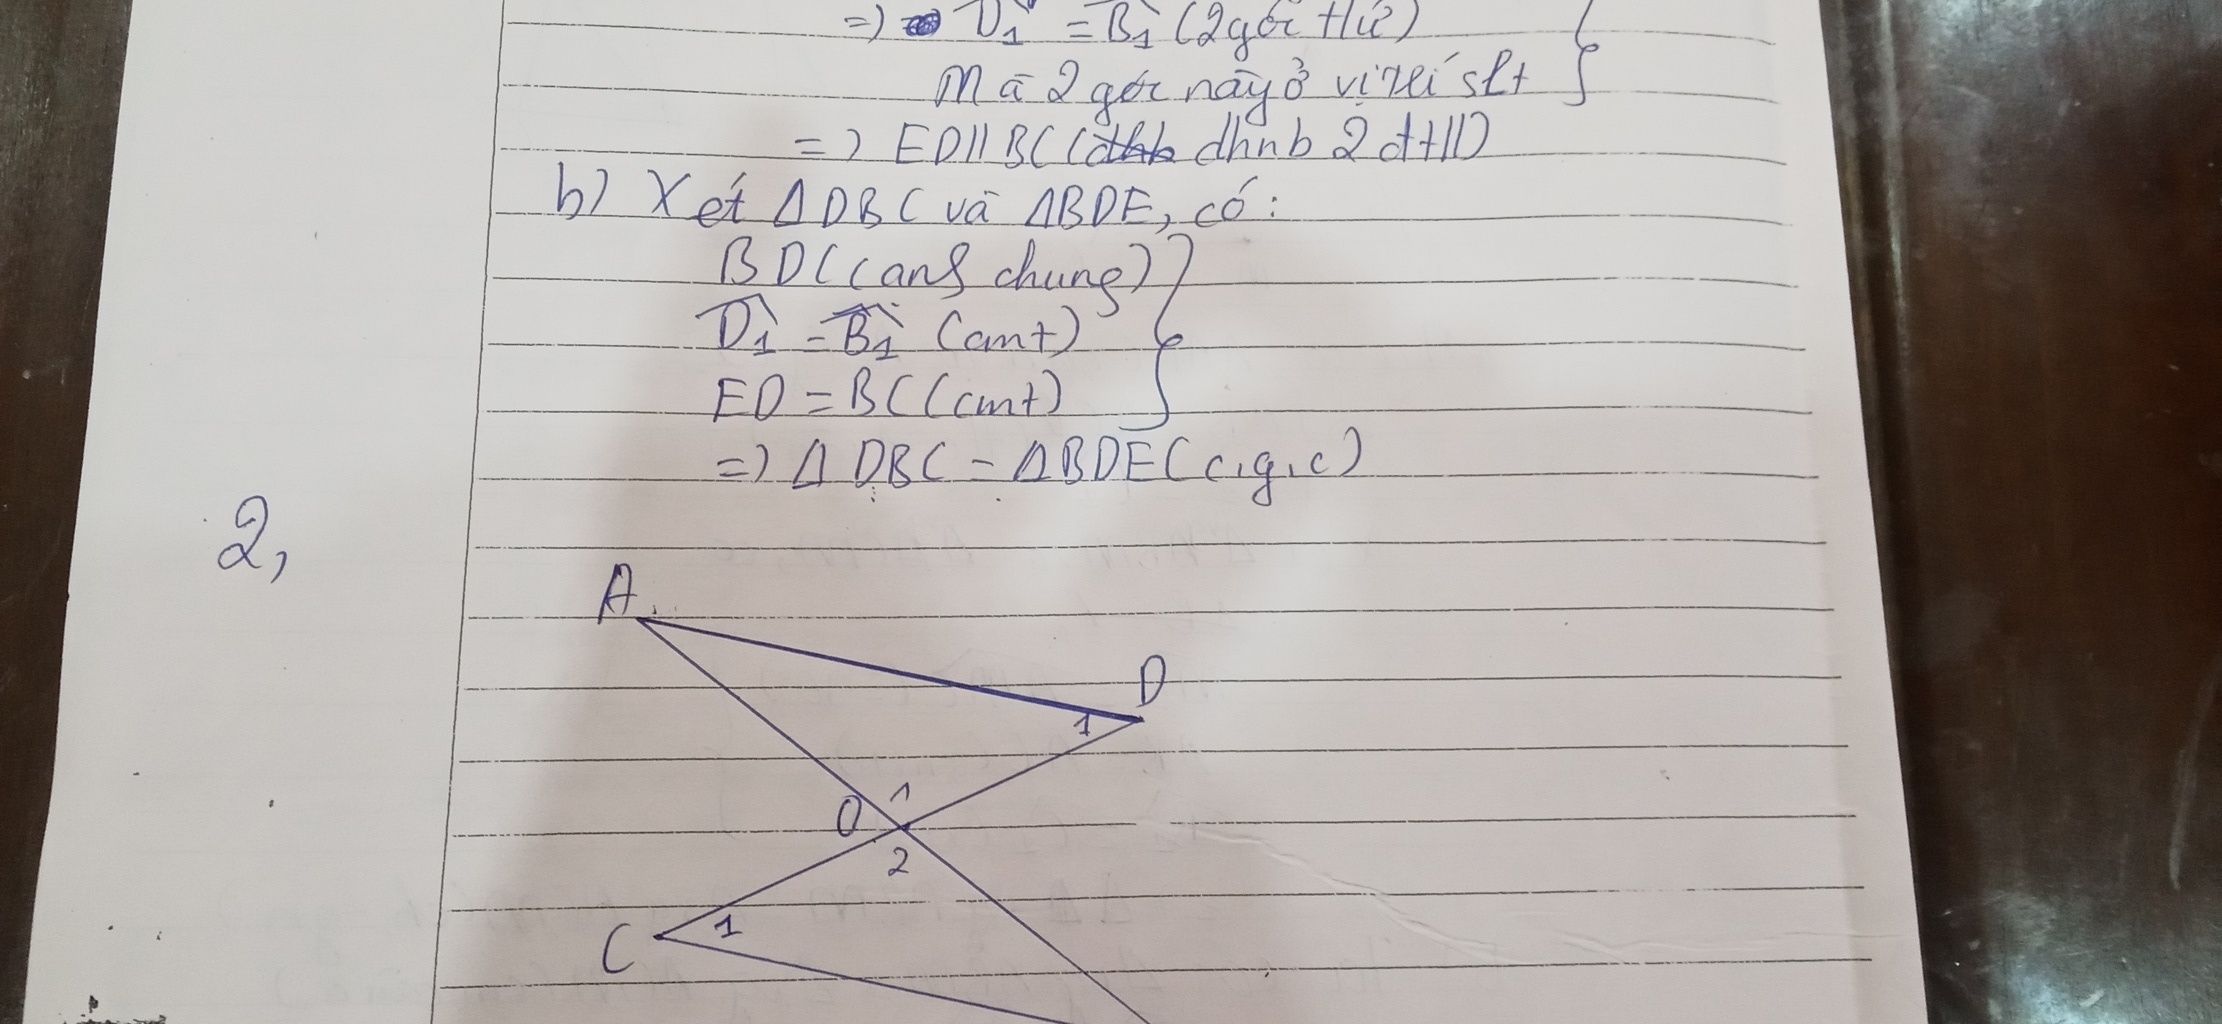 =) D̂₁ = B̂₁ (2 góc t/ứ)
Mà 2 góc này ở vị trí slt
=) ED // BC (dhnb 2 đt //)
b) Xét Δ DBC và ΔBDE, có:
BD (cạnh chung)
D̂₁ = B̂₁ (cmt)
ED = BC (cmt)
=) Δ DBC = ΔBDE (c.g.c)
2,
A
D
1
O 1
2
C 1